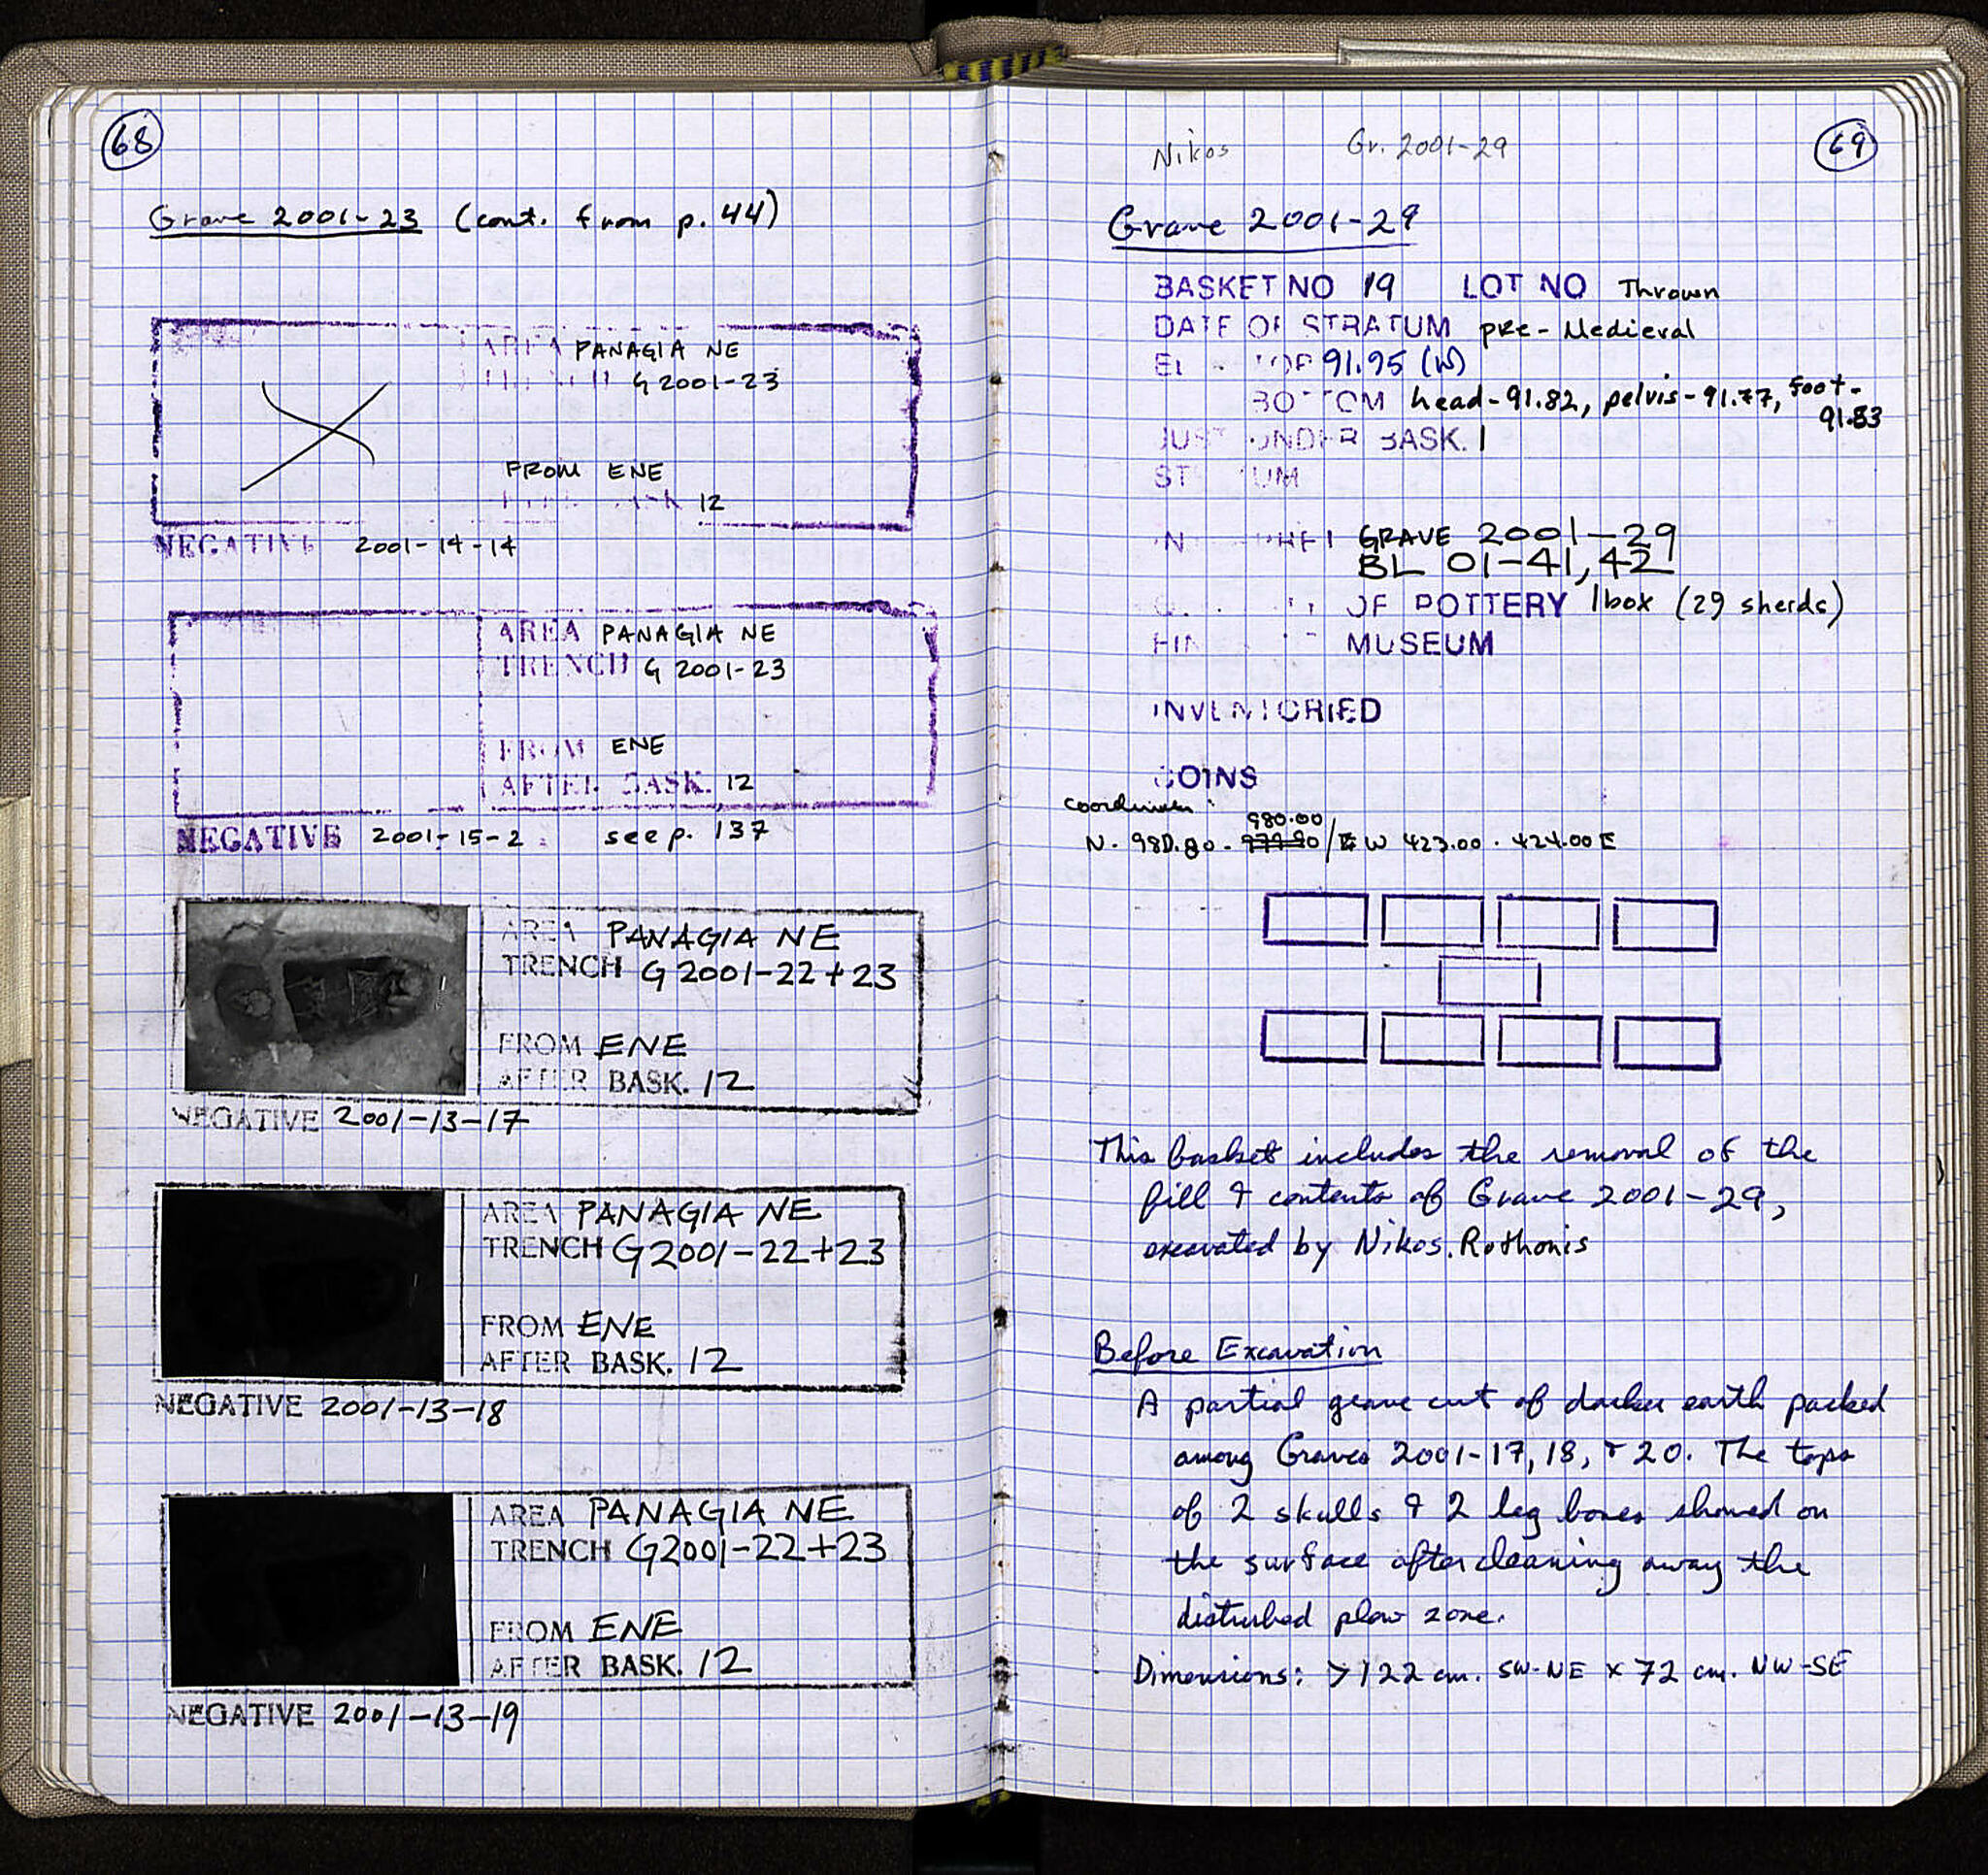 68
Grave 2001-23 (cont. from p. 44)
AREA PANAGIA NE
TRENCH G 2001-23
FROM ENE
AFTER BASK 12
NEGATIVE 2001-14-14
AREA PANAGIA NE
TRENCH G 2001-23
FROM ENE
AFTER BASK. 12
NEGATIVE 2001-15-2 see p. 137
AREA PANAGIA NE
TRENCH G 2001-22+23
FROM ENE
AFTER BASK. 12
NEGATIVE 2001-13-17
AREA PANAGIA NE
TRENCH G2001-22+23
FROM ENE
AFTER BASK. 12
NEGATIVE 2001-13-18
AREA PANAGIA NE
TRENCH G2001-22+23
FROM ENE
AFTER BASK. 12
NEGATIVE 2001-13-19
Nikos Gr. 2001-29
69
Grave 2001-29
BASKET NO 19 LOT NO Thrown
DATE OF STRATUM pre-Medieval
TOP 91.95 (W)
BOTTOM head-91.82, pelvis-91.77, foot-
91.83
JUST UNDER BASK. 1
STRATUM
GRAVE 2001-29
BL 01-41, 42
OF POTTERY 1 box (29 sherds)
MUSEUM
INVENTORIED
COINS
coordinates:
980.00
N. 980.80 - 979.90 / E W 423.00 - 424.00 E
This basket includes the removal of the
fill & contents of Grave 2001-29,
excavated by Nikos Rothonis
Before Excavation
A partial grave cut of darker earth packed
among Graves 2001-17, 18, & 20. The tops
of 2 skulls & 2 leg bones showed on
the surface after cleaning away the
disturbed plow zone.
Dimensions: >122 cm. SW-NE x 72 cm. NW-SE